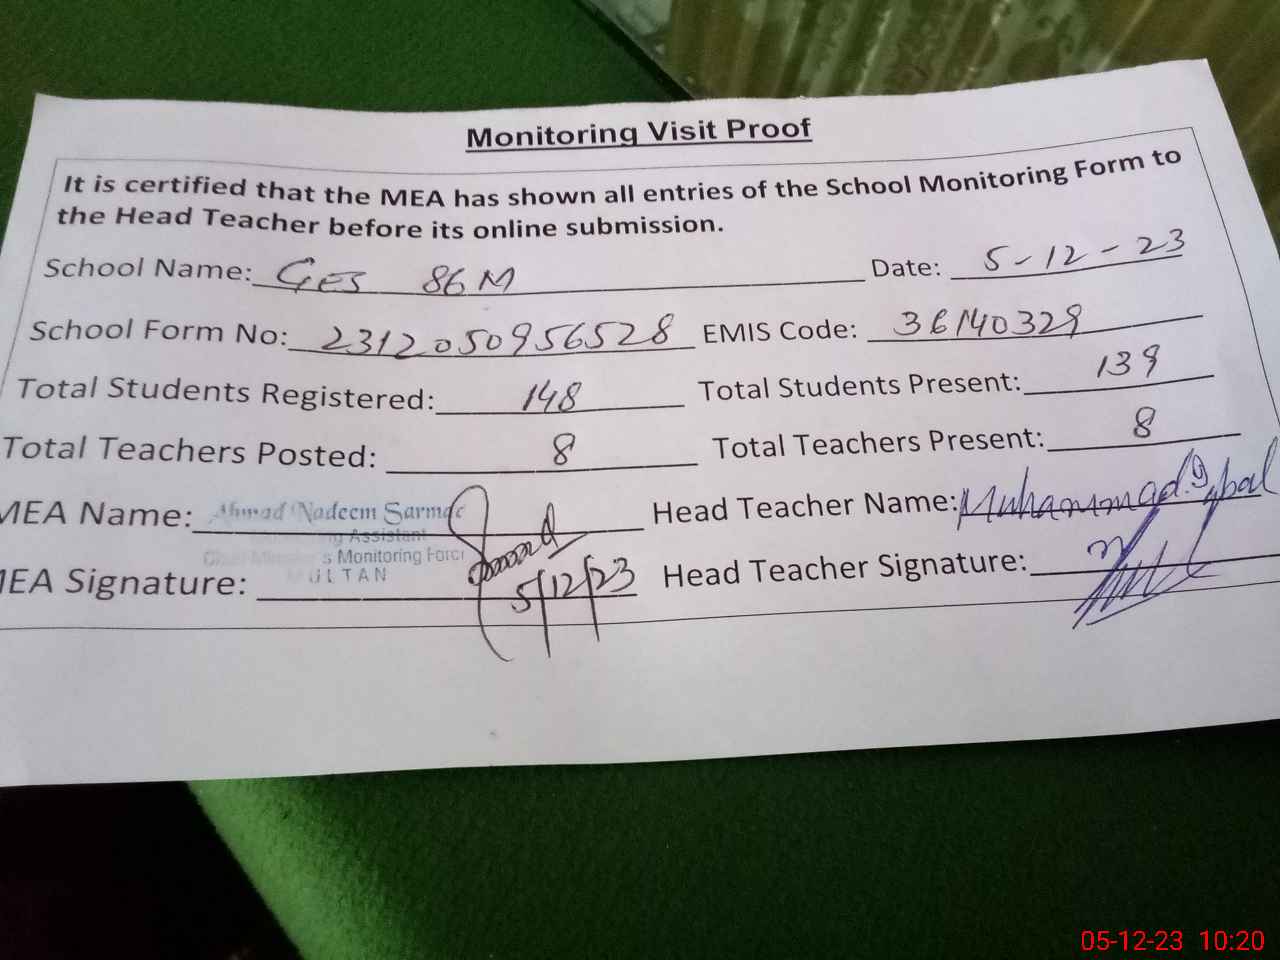 Monitoring Visit Proof
It is certified that the MEA has shown all entries of the School Monitoring Form to
the Head Teacher before its online submission.
School Name: GES 86M Date: 5-12-23
School Form No: 2312050956528 EMIS Code: 36140329
Total Students Registered: 148 Total Students Present: 139
Total Teachers Posted: 8 Total Teachers Present: 8
MEA Name: Ahmad Nadeem Head Teacher Name: Muhammad Iqbal
Assistant
s Monitoring Force
MEA Signature: 5/12/23 Head Teacher Signature:
05-12-23 10:20